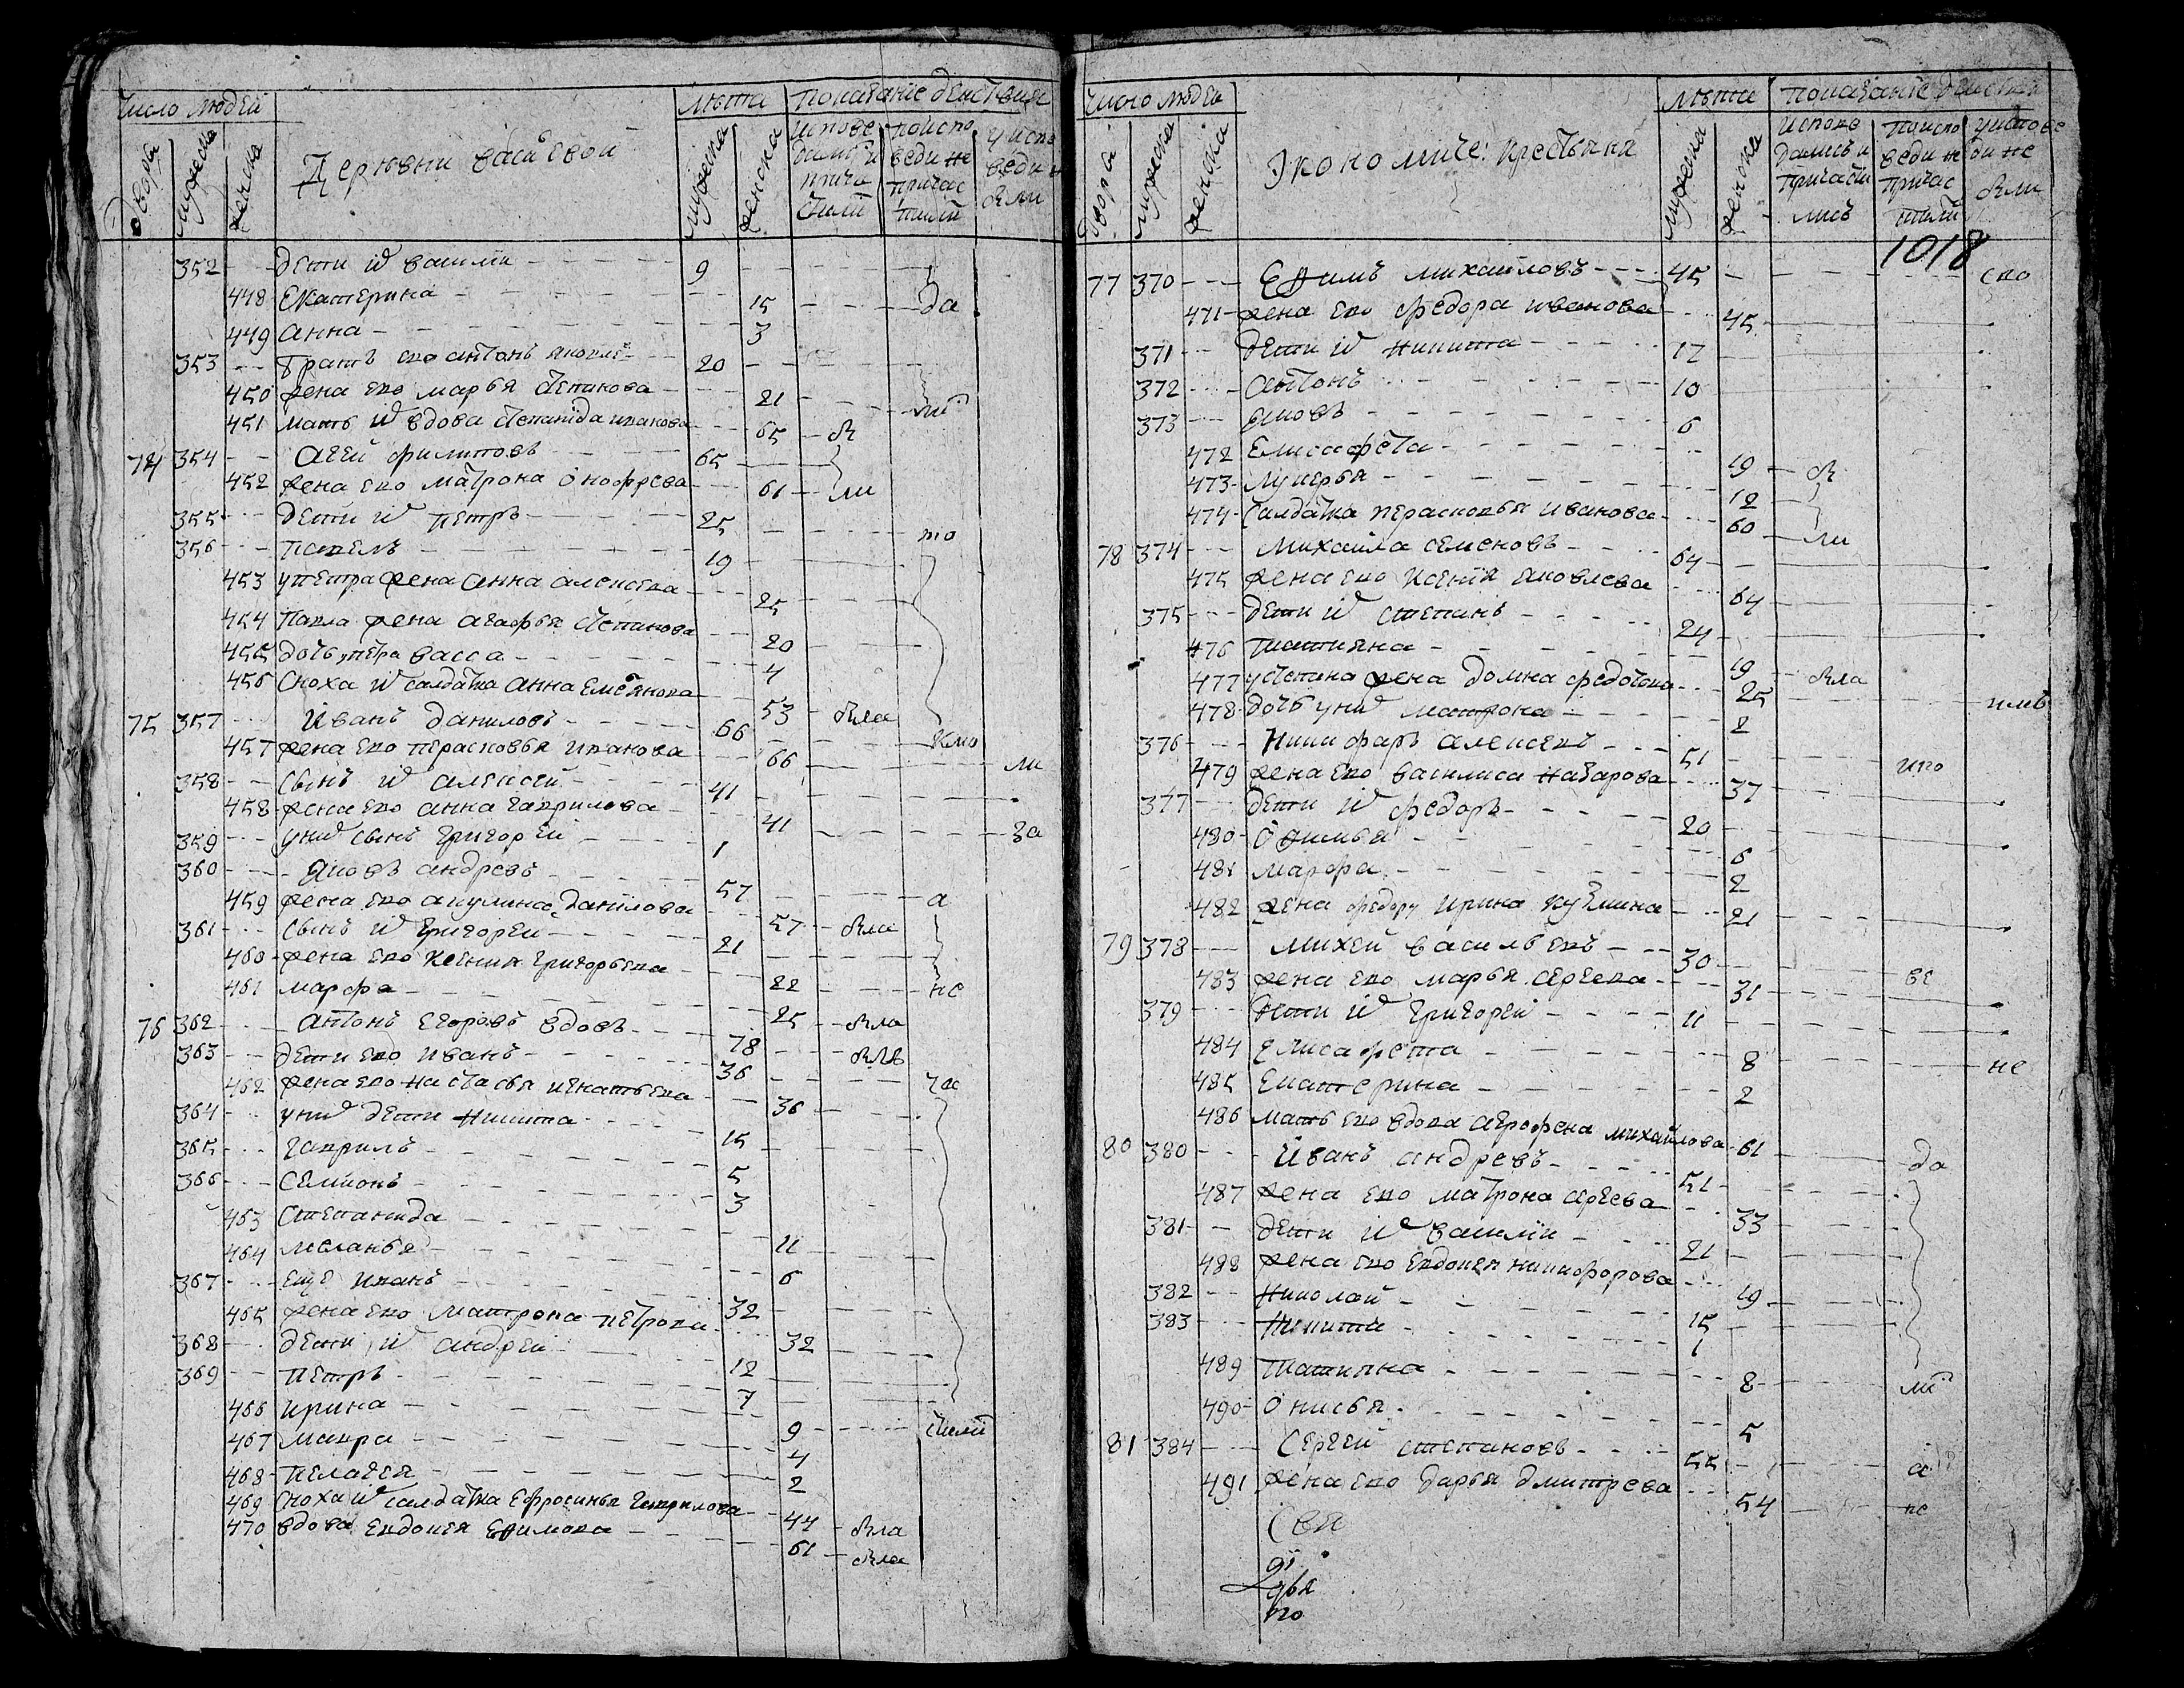 число людей
Деревни
лета
показание действия
двора
мужеска
женска
мужеска
женска
352 дети их василии 9
448 Екатерина 15 да
449 анна 3
353 братъ ево антонъ 20
450 жена ево марья степанова 21
451 мать их вдова степанида иванова 65
74 354 агеи филиповъ 65
452 жена ево матрона онофрева 61 ли
355 дети их петръ 25 то
356 павелъ 19
453 у петра жена анна алексеева 25
454 павла жена агафья степанова 20
455 дочь петра васса 4
456 сноха их салдатка анна емельянова 53
75 357 иванъ даниловъ 66
457 жена ево перасковья иванова 66 ли
358 сынъ их алексеи 41
458 жена ево анна гаврилова 41 за
359 у них сынъ григореи 1
360 яковъ андревъ 57 а
459 жена ево акулина данилова 57
361 сынъ их григореи 21
460 жена ево ксения григорьева 22 не
461 марфа 25
76 362 антонъ егоровъ вдовъ 78
363 дети ево иванъ 36
462 жена ево настасья игнатьева 36
364 у них дети никита 15
365 гаврилъ 5
366 семионъ 3
463 степанида 11
464 меланья 6
367 еще иванъ 32
465 жена ево матрона петрова 32
368 дети их андреи 12
369 петръ 7
466 ирина 9
467 мавра 4
468 пелагея 2
469 сноха их салдатка ефросинья гаврилова 44
470 вдова евдокея ефимова 61
число людеи
Экономиче: крестьяня
лета
показание
двора
мужеска
женска
мужеска
женска
1018
77 370 Ефимъ михаиловъ 45
471 жена ево федора иванова 45
371 дети их никита 17
372 антонъ 10
373 яковъ 6
472 елисафета 19
473 лукерья 12
474 салдатка перасковья иванова 60 ли
78 374 михаила семеновъ 64
475 жена ево ксения яковлева 64
375 дети их степанъ 24
476 татияна 19
477 у степана жена домна федотова 25
478 дочь у них матрона 2
376 никифаръ алексеевъ 51
479 жена ево василиса назарова 37
377 дети их федоръ 20
480 офимья 6
481 марфа 2
482 жена федору ирина кузмина 21
79 378 михеи васильевъ 30 ве
483 жена ево марья сергеева 31
379 дети их григореи 11
484 елисафета 8 не
485 екатерина 2
486 мать ево вдова аграфена михаилова 61
80 380 иванъ андревъ 51 да
487 жена ево матрона сергева 33
381 дети их василии 21
488 жена ево евдокея никифорова 19
382 николаи 15
383 никита 1
489 татияна 8
490 онисья 5
81 384 сергеи степановъ 55 а
491 жена ево дарья дмитрева 54